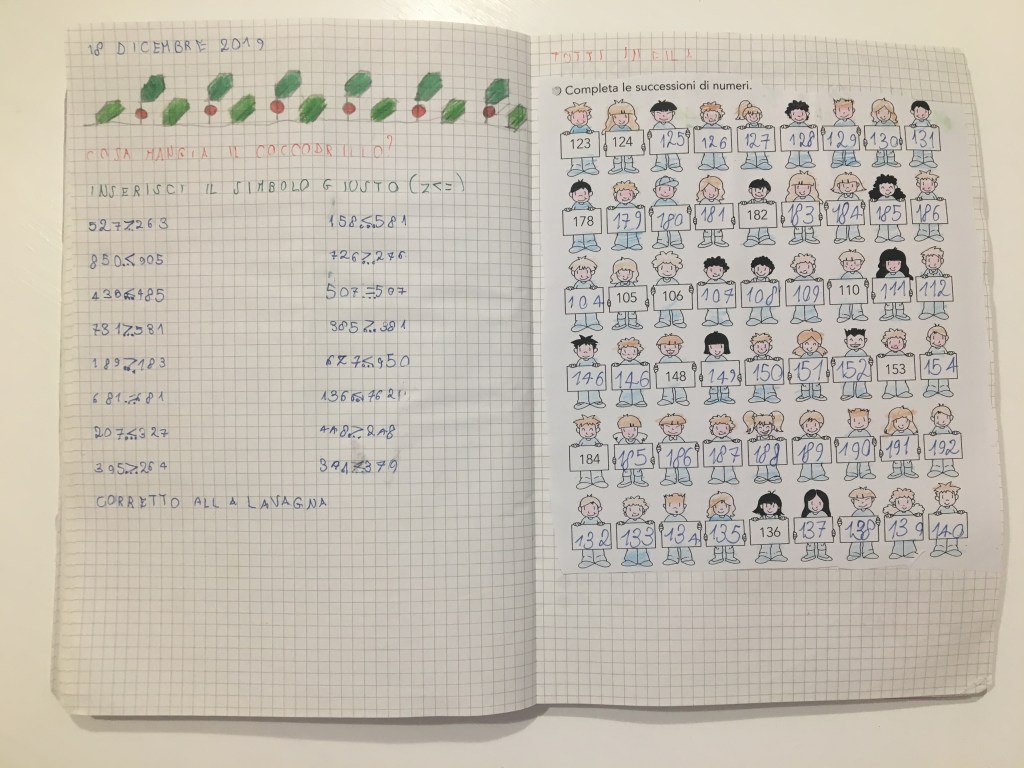 18 DICEMBRE 2019
COSA MANGIA IL COCCODRILLO?
INSERISCI IL SIMBOLO GIUSTO (><=)
527>263 158<581
850<905 726>276
436<485 507=507
731>581 385>381
189>183 627<950
681=681
207<327 448>248
395>264
CORRETTO ALLA LAVAGNA
TUTTI IN FILA
Completa le successioni di numeri.
123 124 125 126 127 128 129 130 131
178 179 180 181 182 183 184 185 186
104 105 106 107 108 109 110 111 112
146 146 148 149 150 151 152 153 154
184 185 186 187 188 189 190 191 192
132 133 134 135 136 137 138 139 140